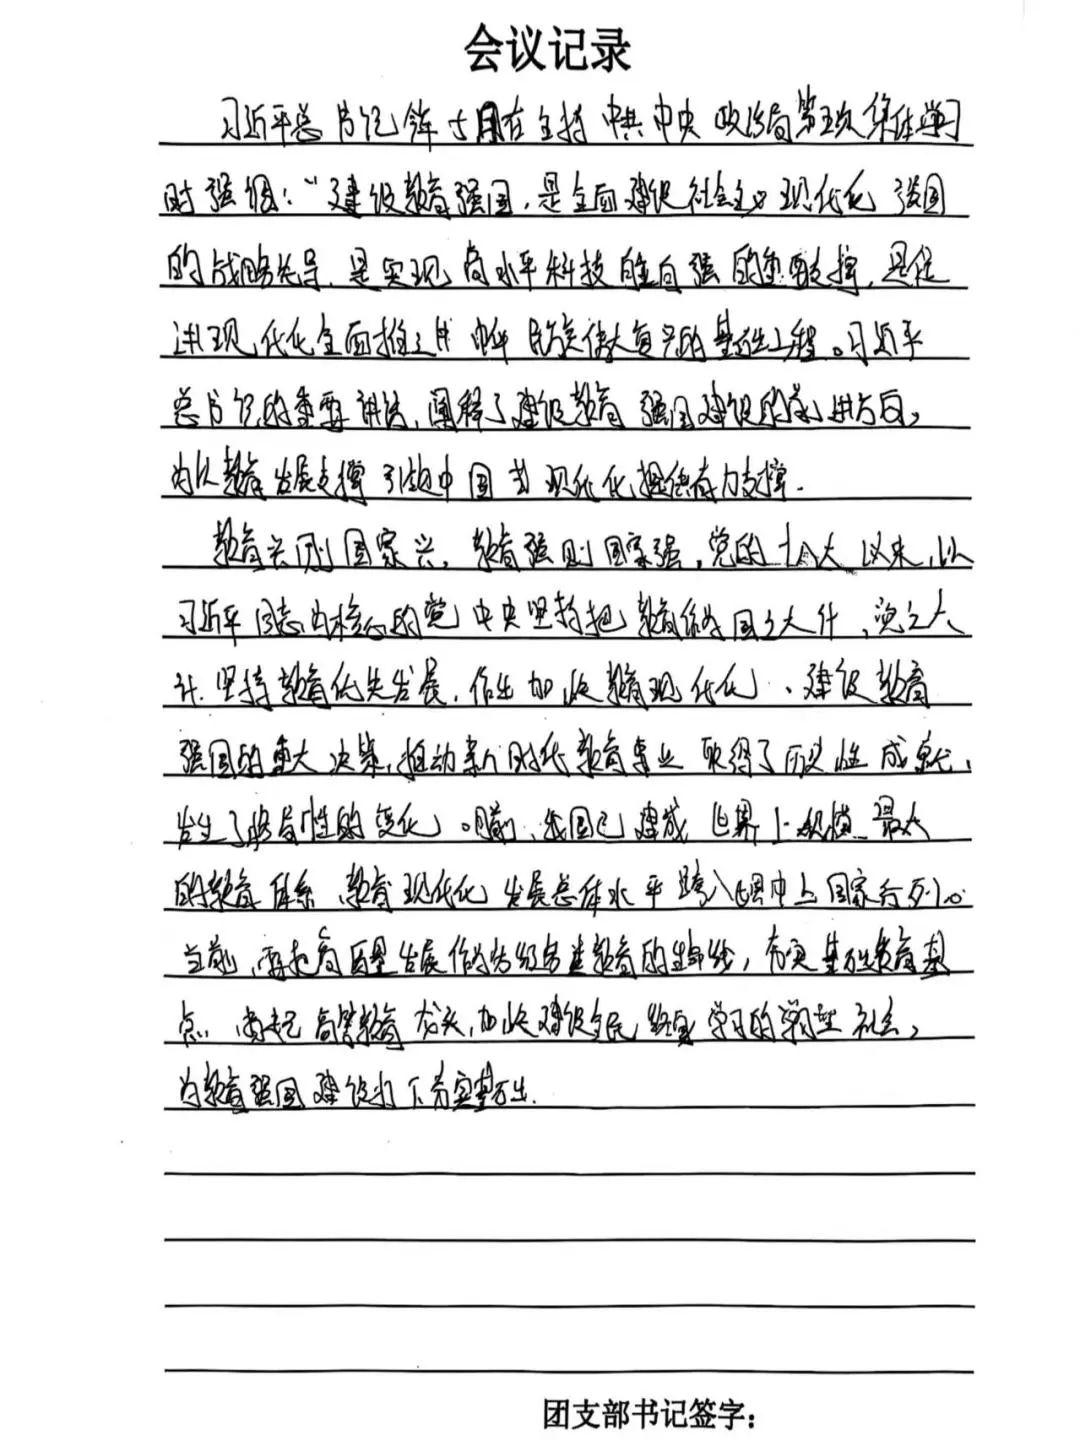 会议记录
习近平总书记今年5月在主持中共中央政治局第五次集体学习
时强调：“建设教育强国，是全面建设社会主义现代化强国
的战略先导，是实现高水平科技自立自强的重要支撑，是促
进现代化全面推进中华民族伟大复兴的基础工程。习近平
总书记的重要讲话，阐释了建设教育强国建设的前进方向，
为以教育发展支撑引领中国式现代化提供有力支撑.
教育兴则国家兴，教育强则国家强，党的十八大以来，以
习近平同志为核心的党中央坚持把教育作为国之大计，党之大
计.坚持教育优先发展，作出加快教育现代化、建设教育
强国的重大决策，推动新时代教育事业取得了历史性成就，
发生了格局性的变化。目前，我国已建成世界上规模最大
的教育体系，教育现代化发展总体水平跨入世界中上国家行列。
当前，要把高质量发展作为各级各类教育的生命线，夯实基础教育基
点，尚起高等教育龙头，加快建设全民终身学习的学习型社会，
为教育强国建设打下夯实基础.
团支部书记签字：